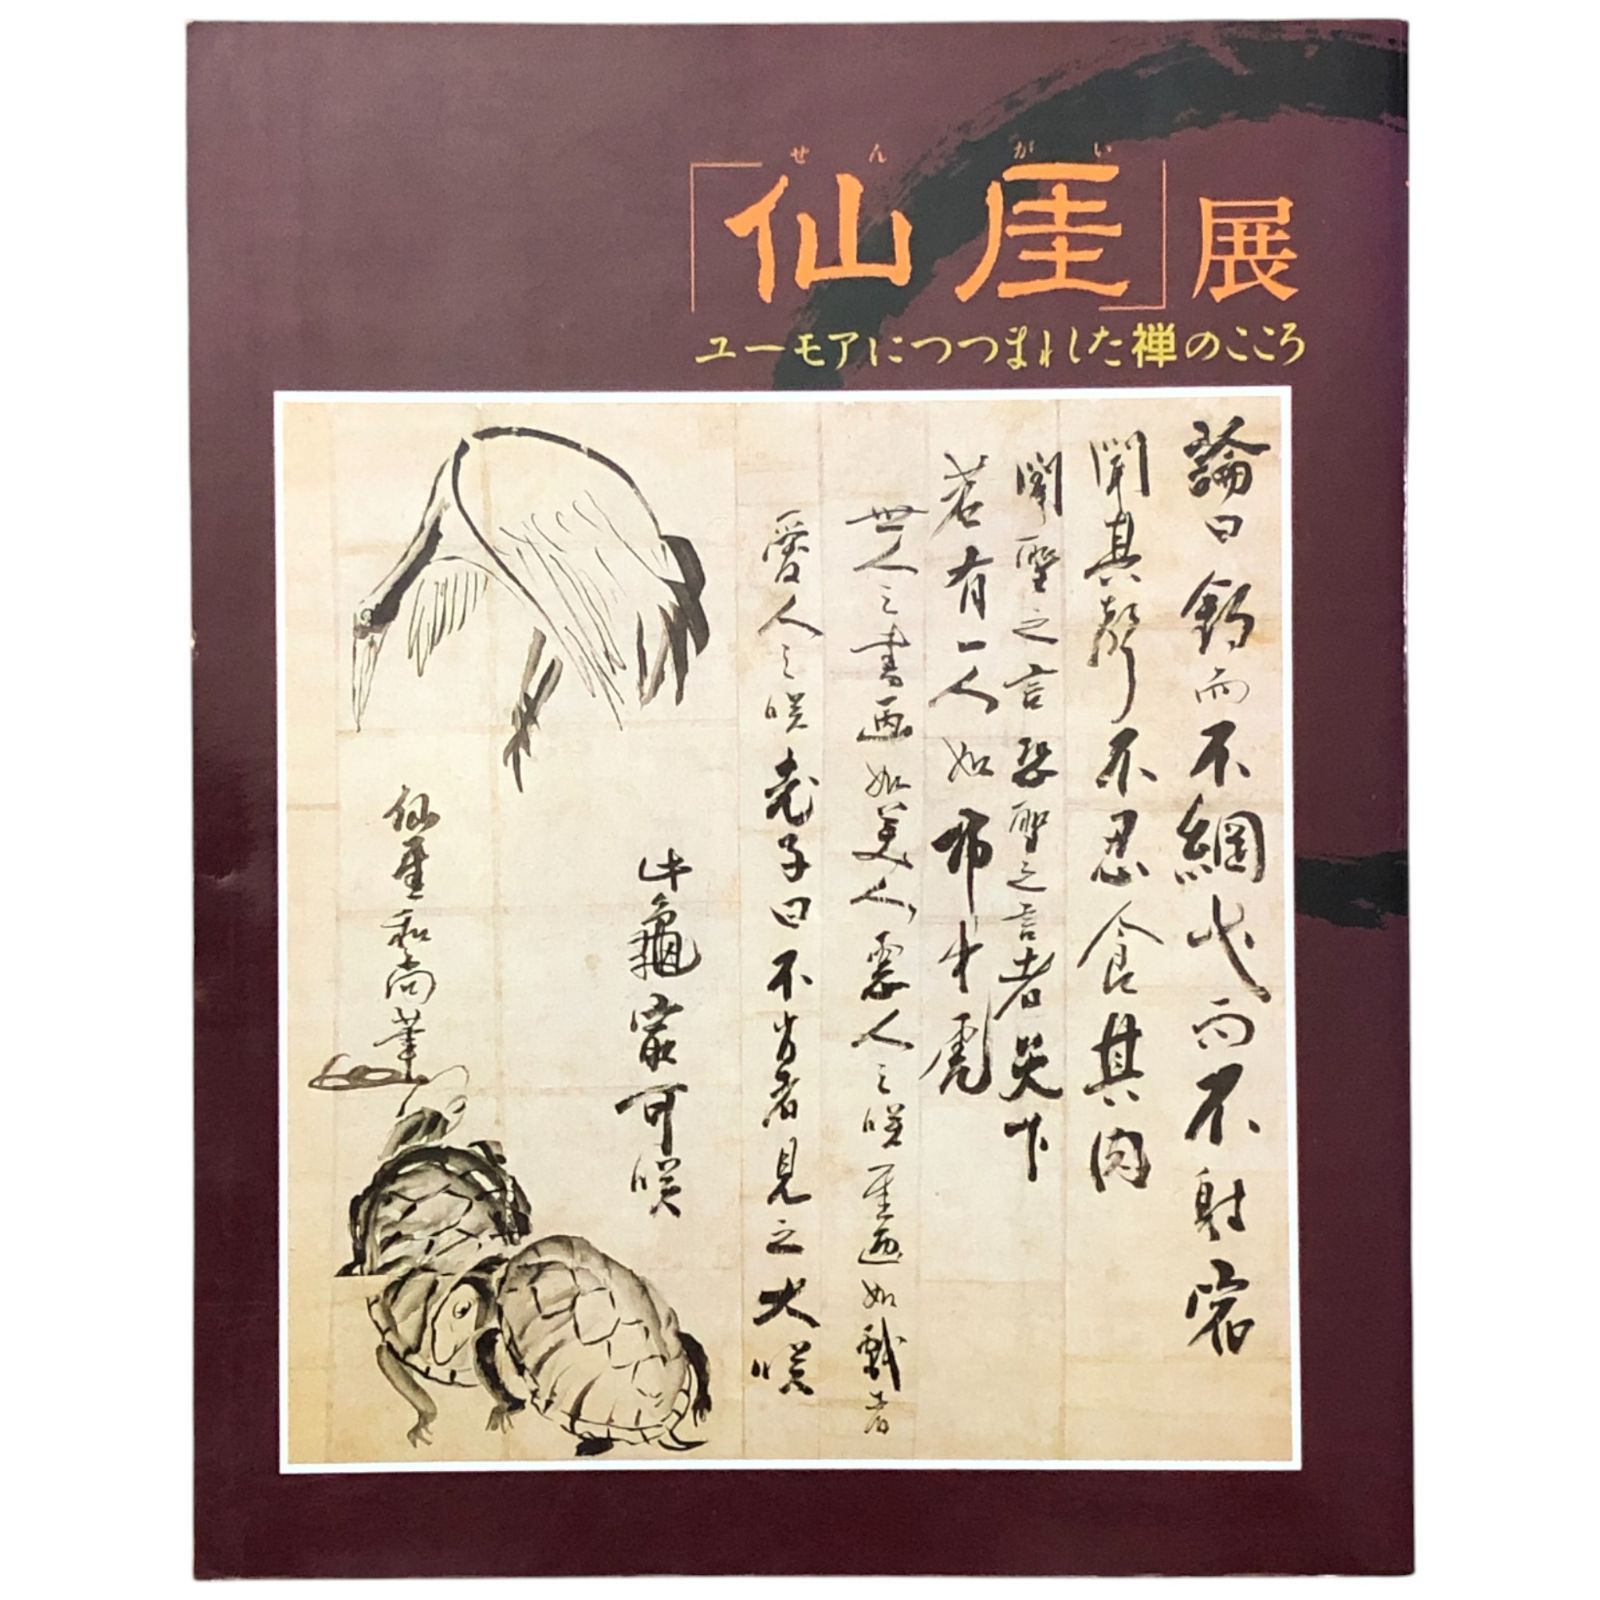 せんがい
「仙厓」展
ユーモアにつつまれた禅のこころ
論曰釣而不網弋而不射宿
聞其聲不忍食其肉
聞聖之言 聖之言者天下
若有一人如
世人之書画如美人悪人之咲厓画如戯者
愛人之咲老子曰不肖者見之大咲
龜 可咲
仙厓和尚筆